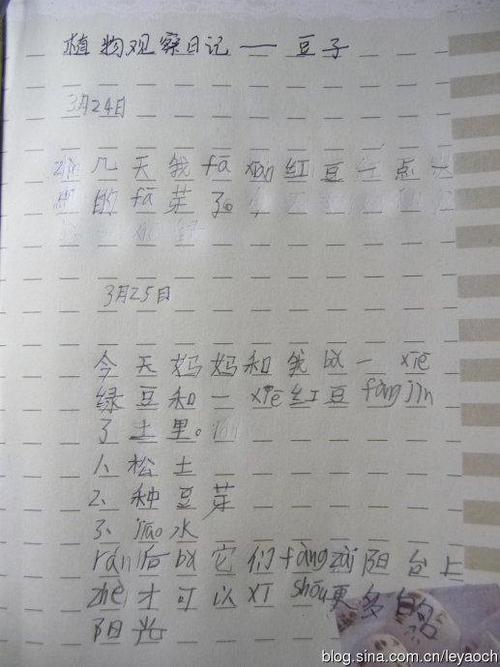 植物观察日记——豆子
3月24日
几天我fā xiàn红豆一点一
的fā芽了。
3月25日
今天妈妈和我bǎ一xiē
绿豆和一xiē红豆fàng jìn
了土里。
1、松土
2、种豆芽
3、jiāo水
rán后bǎ它们fàng zài阳台上
zhè才可以xī shōu更多的
阳光
blog.sina.com.cn/leyaoch